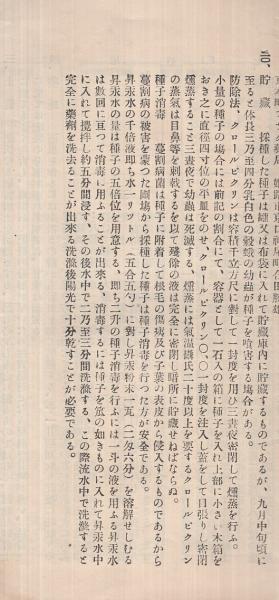 二〇、
貯　藏　採種した種子は罐又は布袋に入れて貯藏庫內に貯藏するものであるが、九月中旬頃に
至ると体長三乃至四分乳白色の穀蛾の幼蟲が種子を喰害する場合がある。
防除法、クロールピクリンは容積千立方尺に對して一封度を用ひ三晝夜密閉して燻蒸を行ふ。
小量の種子の場合には前記の割合にて、容器として一石入の箱に種子を入れ上部に小さい木箱を
おき之に直徑四寸位の小皿をのせ、クロールピクリン〇、〇一封度を注入し蓋をして目張りし密閉
燻蒸すること三晝夜で幼蟲は死滅する、燻蒸には氣温攝氏二十度以上を要するクロールピクリン
の蒸氣は目鼻等を刺戟するを以て殘餘の液は完全に密閉し暗所に貯藏せねばならぬ。
種子消毒　蔓割病菌は種子に附着して根毛の傷痍及び子葉の表皮から侵入するものであるから
蔓割病の被害を蒙つた圃場から採種した種子は種子消毒を行つた方が安全である。
昇汞水の千倍液卽ち水一リツトル（五合五勺）に對し昇汞粉末一瓦（二匁六分）を溶解せしむる
昇汞水の量は種子の五倍位を用意する、卽ち二升の種子消毒を行ふには一斗の液を用ふる昇汞水
は數回に亘つて消毒に用ふることが出來る、消毒するには種子を笊の如きものに入れて昇汞水中
に入れて攪拌し約五分間浸す、その後水中で二乃至三分間洗滌する、この際流水中で洗滌すると
完全に藥劑を洗去ることが出來る洗滌後陽光で十分乾すことが必要である。